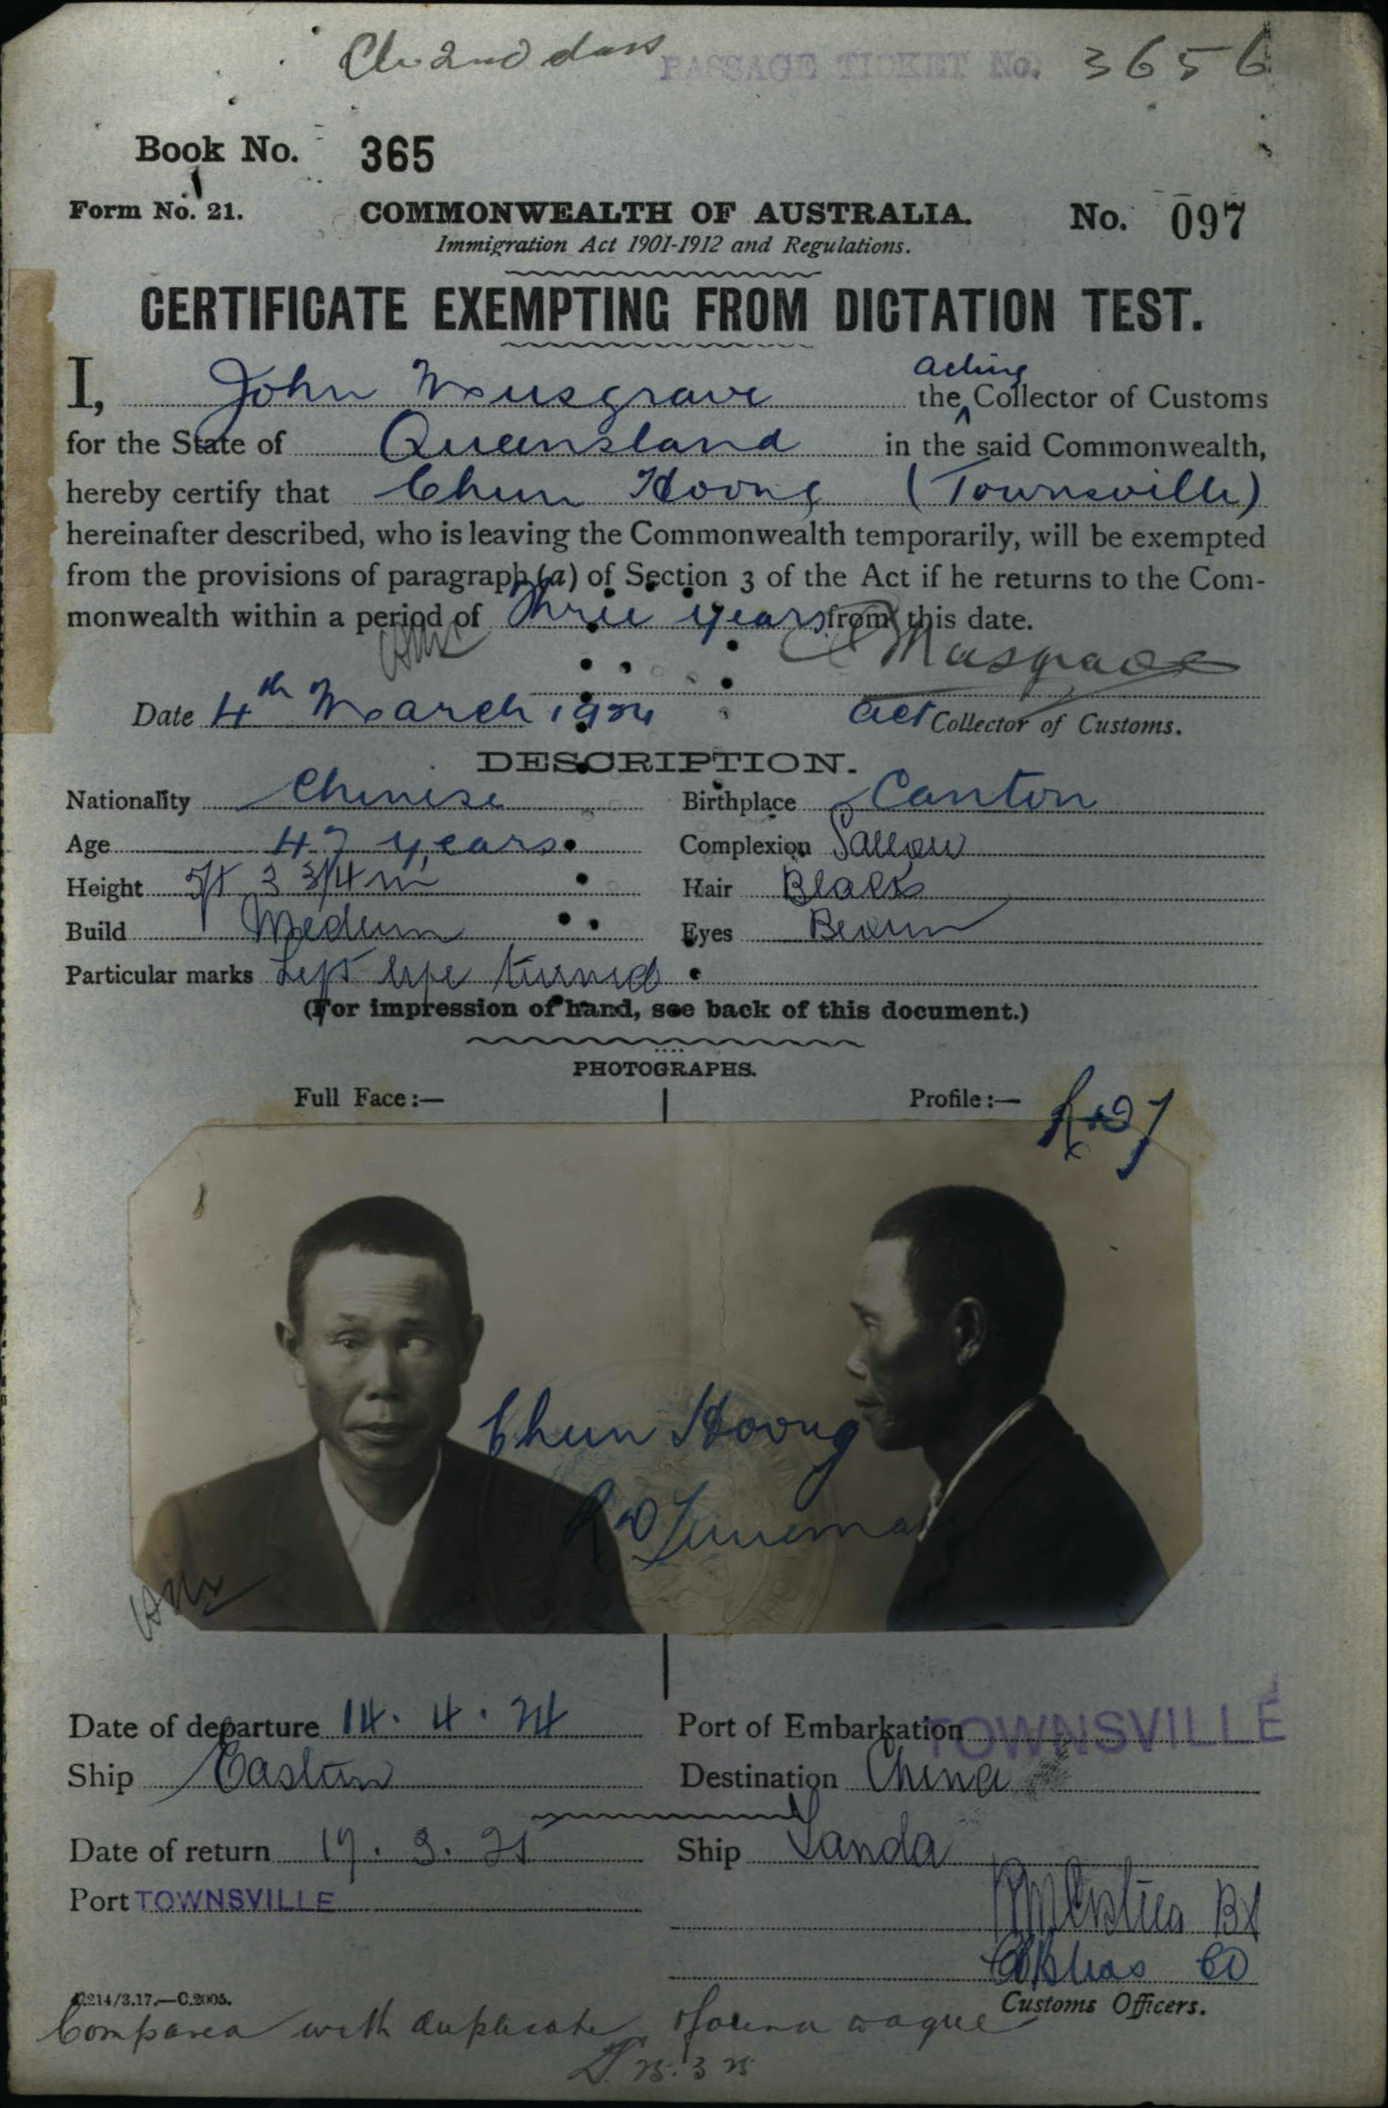 2nd class PASSAGE TICKET No. 3656
Book No. 365
Form No. 21. COMMONWEALTH OF AUSTRALIA. No. 097
Immigration Act 1901-1912 and Regulations.
CERTIFICATE EXEMPTING FROM DICTATION TEST.
I, John Musgrave the acting Collector of Customs
for the State of Queensland in the said Commonwealth,
hereby certify that Chun Hoong (Townsville)
hereinafter described, who is leaving the Commonwealth temporarily, will be exempted
from the provisions of paragraph (a) of Section 3 of the Act if he returns to the Com-
monwealth within a period of Three years from this date.
Musgrave
Date 4th March 1924 Act Collector of Customs.
DESCRIPTION.
Nationality Chinese Birthplace Canton
Age 47 years Complexion Sallow
Height 5ft 3 3/4 in Hair Black
Build Medium Eyes Brown
Particular marks Left eye turned
(For impression of hand, see back of this document.)
PHOTOGRAPHS.
Full Face:— Profile:—
Chun Hoong
Date of departure 14. 4. 24 Port of Embarkation TOWNSVILLE
Ship Eastern Destination China
Date of return 19. 3. 25 Ship Tanda
Port TOWNSVILLE
CO
Customs Officers.
C.214/3.17.—C.2005.
Compared with duplicate
25.3.25